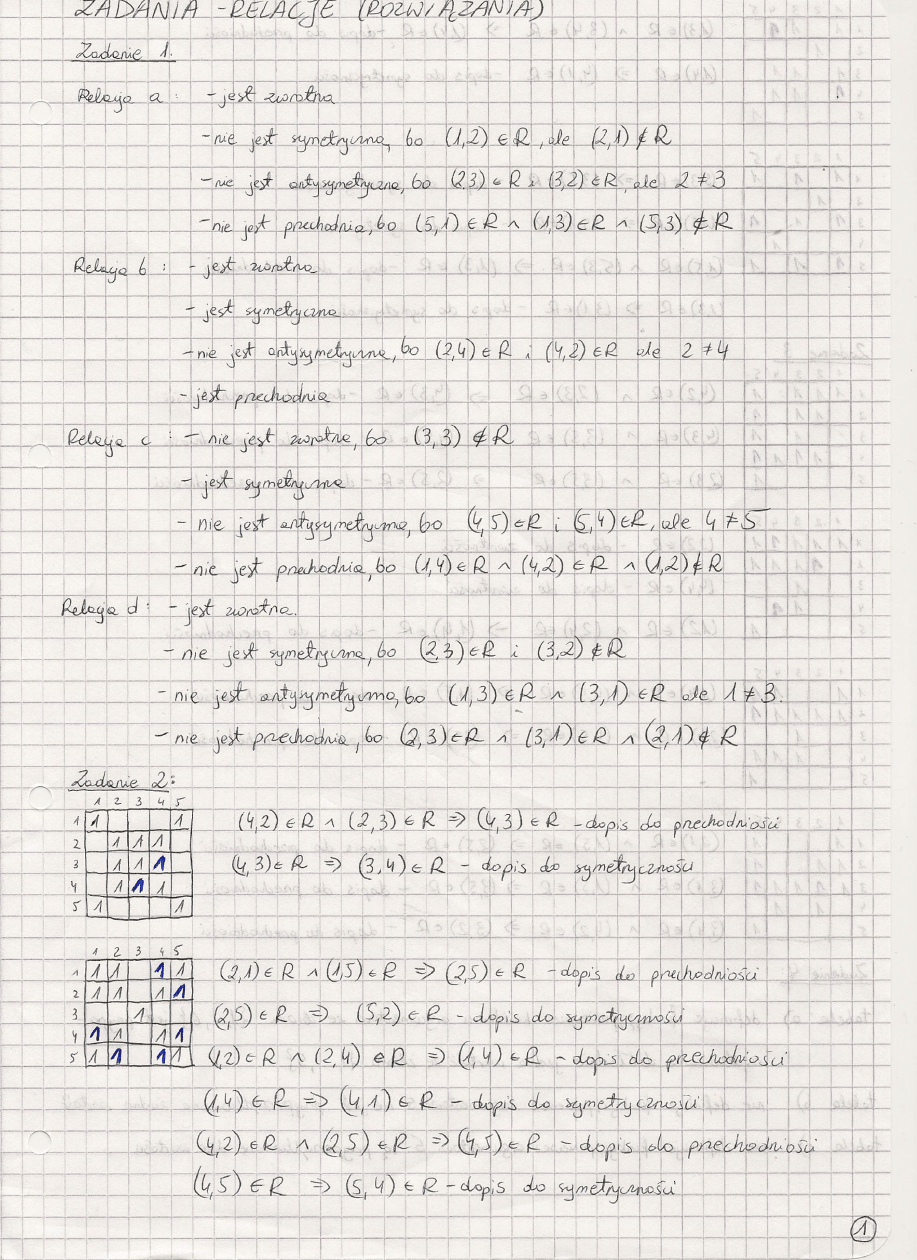 ZADANIA - RELACJE (ROZWIĄZANIA)
Zadanie 1.
Relacja a: - jest zwrotna
- nie jest symetryczna, bo (1,2) ∈ R, ale (2,1) ∉ R
- nie jest antysymetryczna, bo (2,3) ∈ R i (3,2) ∈ R, ale 2 ≠ 3
- nie jest przechodnia, bo (5,1) ∈ R ∧ (1,3) ∈ R ∧ (5,3) ∉ R
Relacja b: - jest zwrotna
- jest symetryczna
- nie jest antysymetryczna, bo (2,4) ∈ R i (4,2) ∈ R ale 2 ≠ 4
- jest przechodnia
Relacja c: - nie jest zwrotna, bo (3,3) ∉ R
- jest symetryczna
- nie jest antysymetryczna, bo (4,5) ∈ R i (5,4) ∈ R, ale 4 ≠ 5
- nie jest przechodnia, bo (1,4) ∈ R ∧ (4,2) ∈ R ∧ (1,2) ∉ R
Relacja d: - jest zwrotna.
- nie jest symetryczna, bo (2,3) ∈ R i (3,2) ∉ R
- nie jest antysymetryczna, bo (1,3) ∈ R ∧ (3,1) ∈ R ale 1 ≠ 3.
- nie jest przechodnia, bo (2,3) ∈ R ∧ (3,1) ∈ R ∧ (2,1) ∉ R
Zadanie 2:
1 2 3 4 5
1 1 1
2 1 1 1
3 1 1 1
4 1 1 1
5 1 1
(4,2) ∈ R ∧ (2,3) ∈ R => (4,3) ∈ R - dopis do przechodniości
(4,3) ∈ R => (3,4) ∈ R - dopis do symetryczności
1 2 3 4 5
1 1 1 1 1
2 1 1 1 1
3 1
4 1 1 1 1
5 1 1 1 1
(2,1) ∈ R ∧ (1,5) ∈ R => (2,5) ∈ R - dopis do przechodniości
(2,5) ∈ R => (5,2) ∈ R - dopis do symetryczności
(1,2) ∈ R ∧ (2,4) ∈ R => (1,4) ∈ R - dopis do przechodniości
(1,4) ∈ R => (4,1) ∈ R - dopis do symetryczności
(4,2) ∈ R ∧ (2,5) ∈ R => (4,5) ∈ R - dopis do przechodniości
(4,5) ∈ R => (5,4) ∈ R - dopis do symetryczności
1